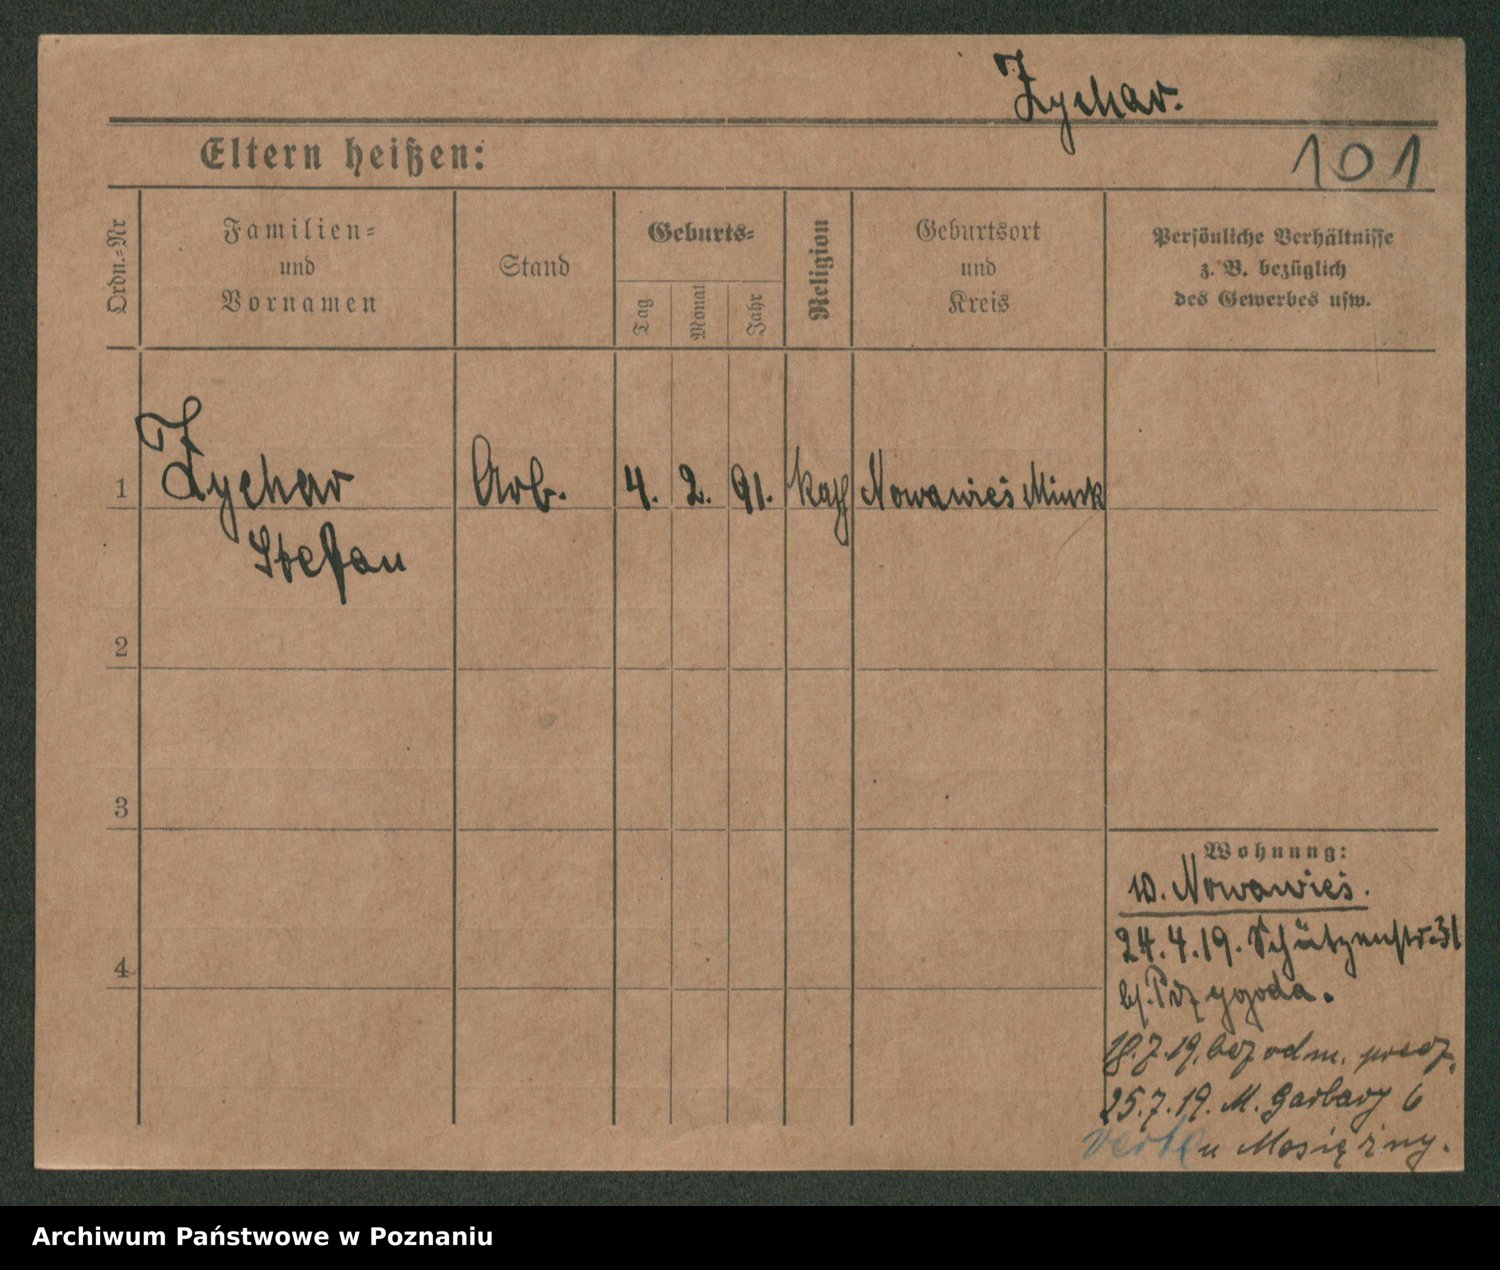 Zychar.
Eltern heißen:
101
Ordn.=Nr
Familien=
und
Vornamen
Stand
Geburts=
Tag
Monat
Jahr
Religion
Geburtsort
und
Kreis
Persönliche Verhältnisse
z. B. bezüglich
des Gewerbes usw.
1 Zychar Arb. 4. 2. 91. kath Nowawieś Minsk
Stefan
2
3
4
Wohnung:
w. Nowawieś.
24.4.19. Schützenstr. 31
b/. Przygoda.
18.7.19. bez odm.
25.7.19. M. Garbary 6
u Mosiężny.
Archiwum Państwowe w Poznaniu